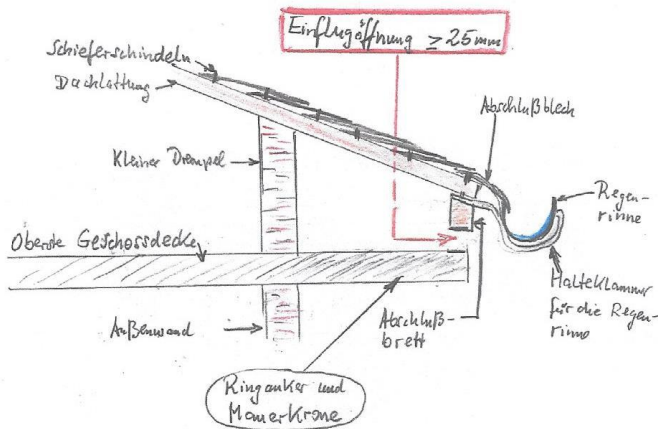 Einflugöffnung ≥ 25mm
Schieferschindeln
Dachlattung
Abschlußblech
Kleiner Drempel
Regen-
rinne
Oberste Geschossdecke
Halteklammer
für die Regen-
rinne
Außenwand
Abschluß-
brett
Ringanker und
Mauerkrone